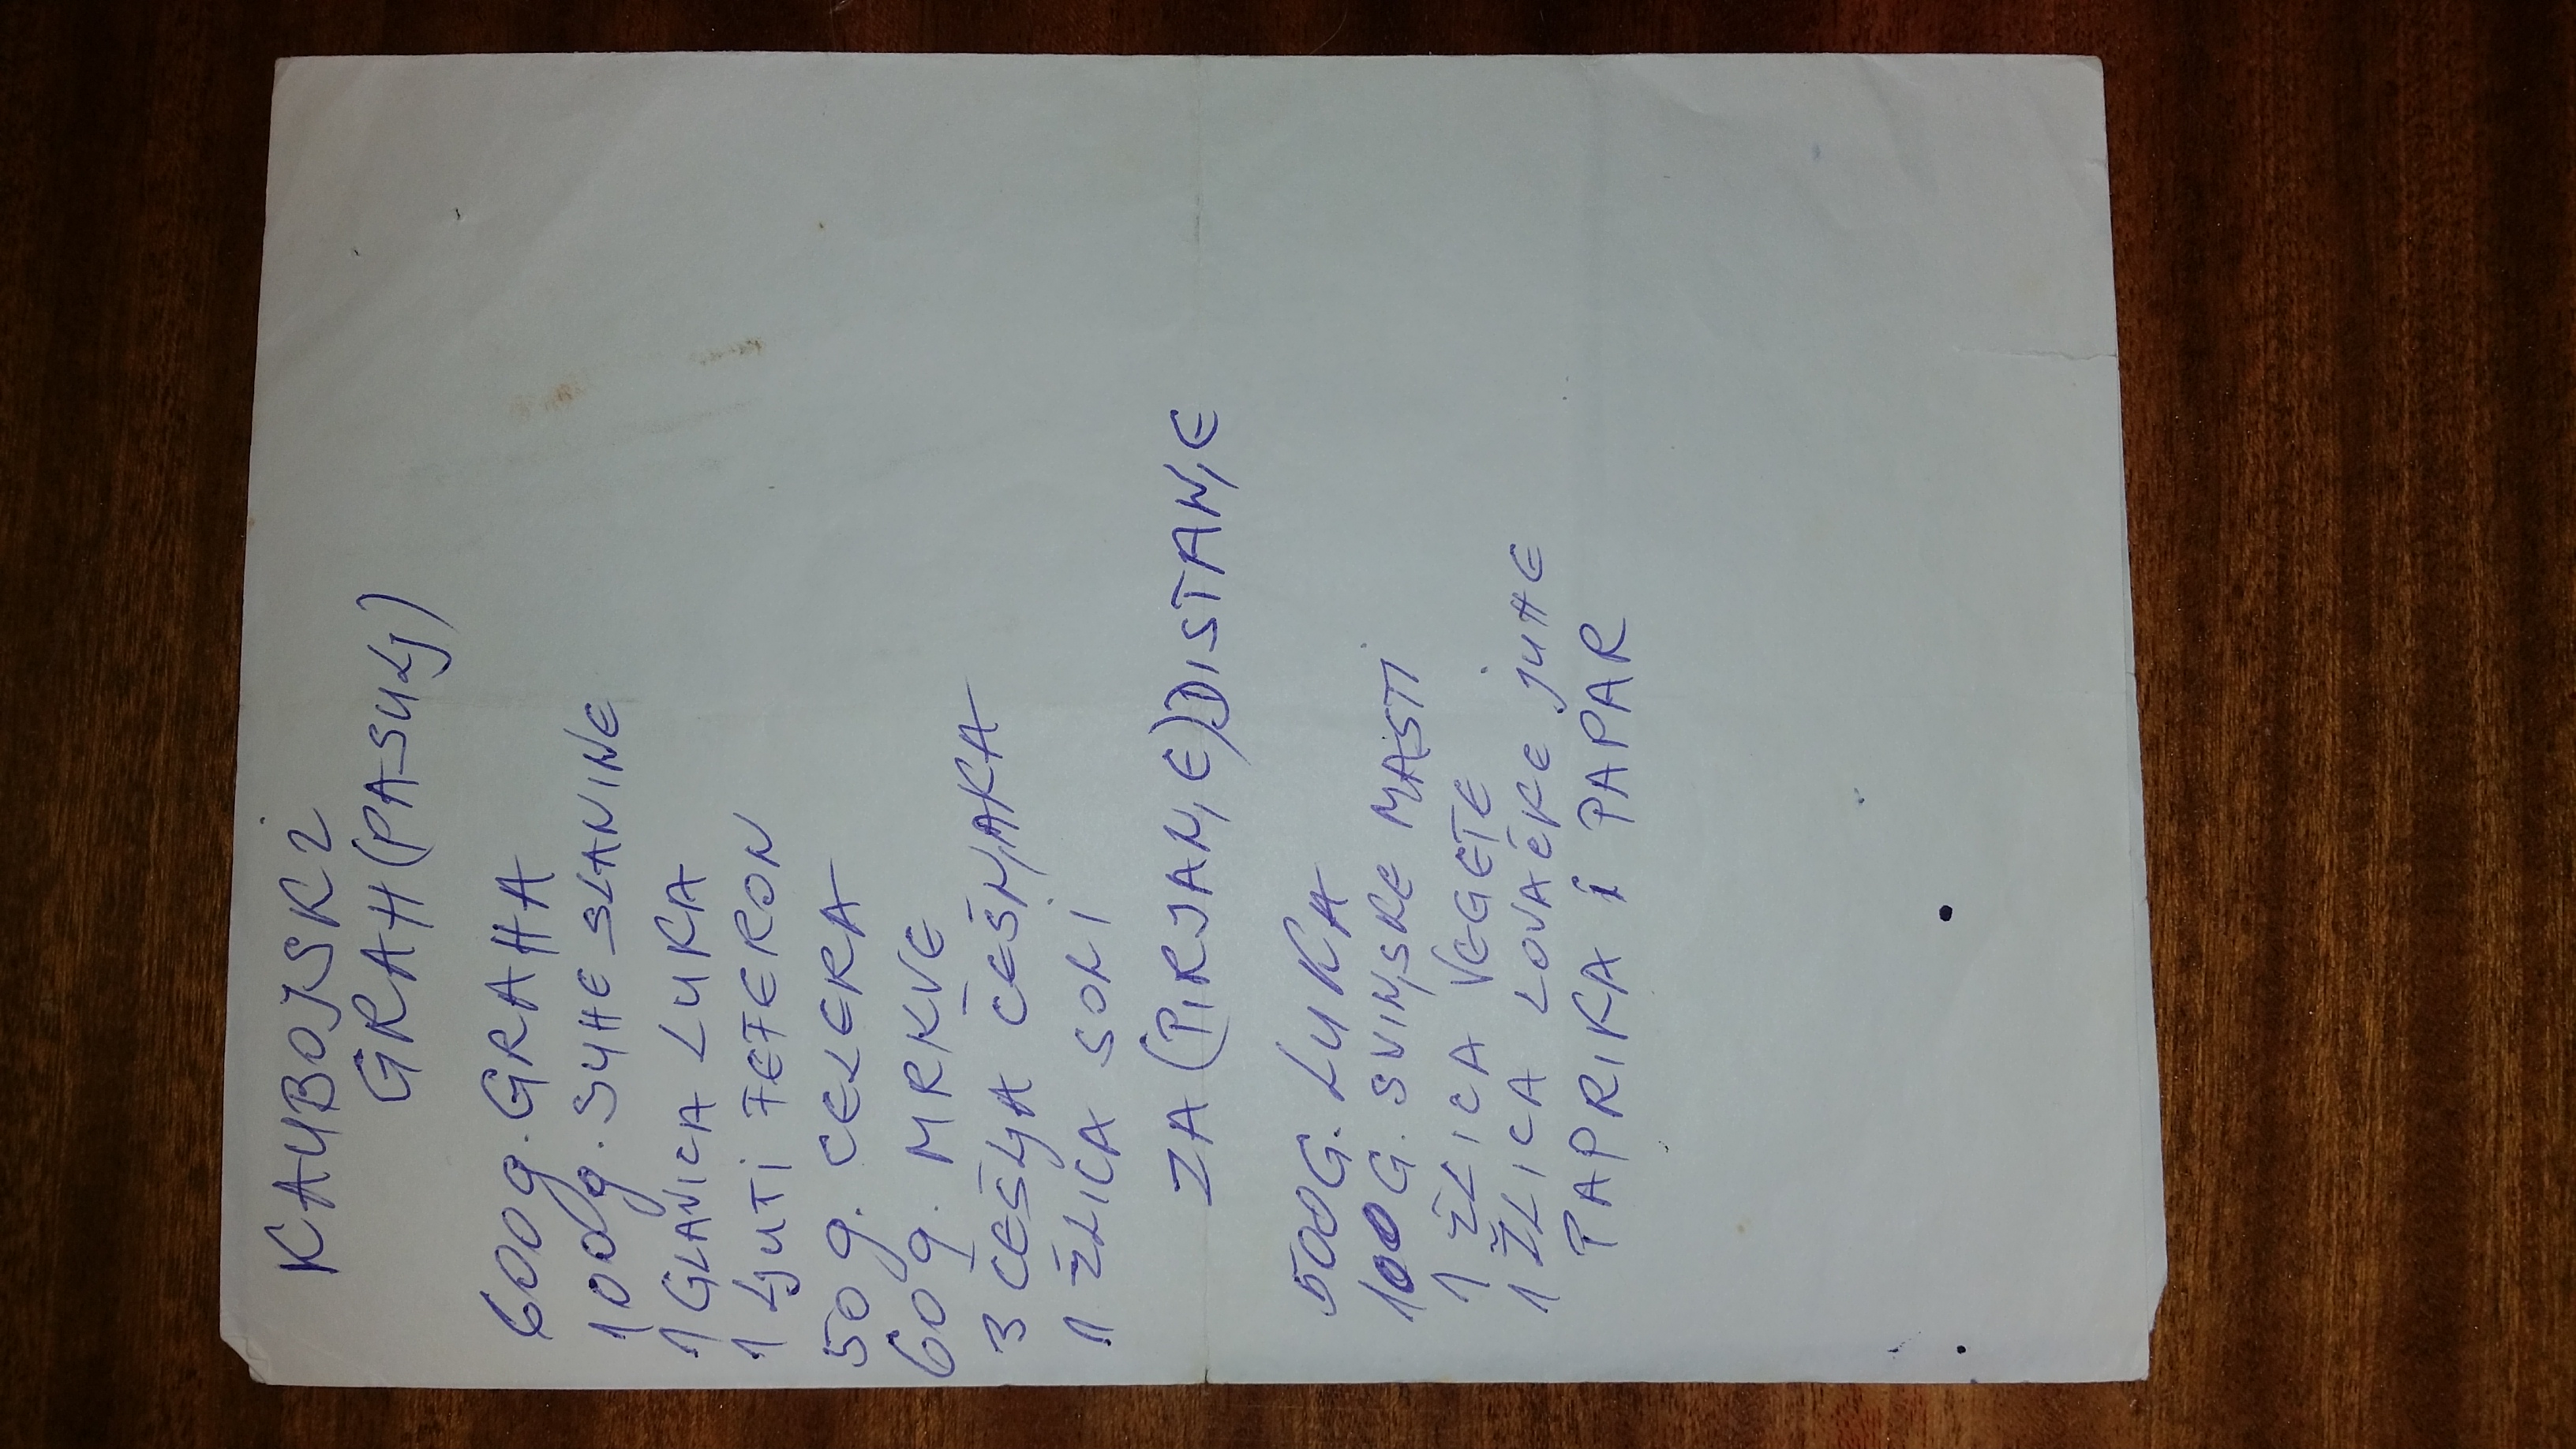 KAUBOJSKI
GRAH (PASULJ)
600g. GRAHA
100g. SUHE SLANINE
1 GLAVICA LUKA
1 LJUTI FEFERON
50 g. CELERA
60 g. MRKVE
3 ČEŠLJA ČEŠNJAKA
1 ŽLICA SOLI
ZA (PIRJANJE) DISTANJE
500G. LUKA
100 G. SVINJSKE MASTI
1 ŽLICA VEGETE
1 ŽLICA LOVAČKE JUHE
PAPRIKA i PAPAR